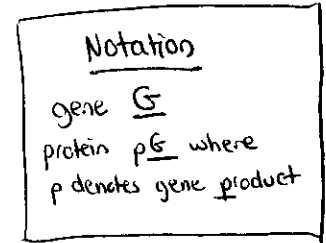 Notation
gene G
protein pG where
p denotes gene product